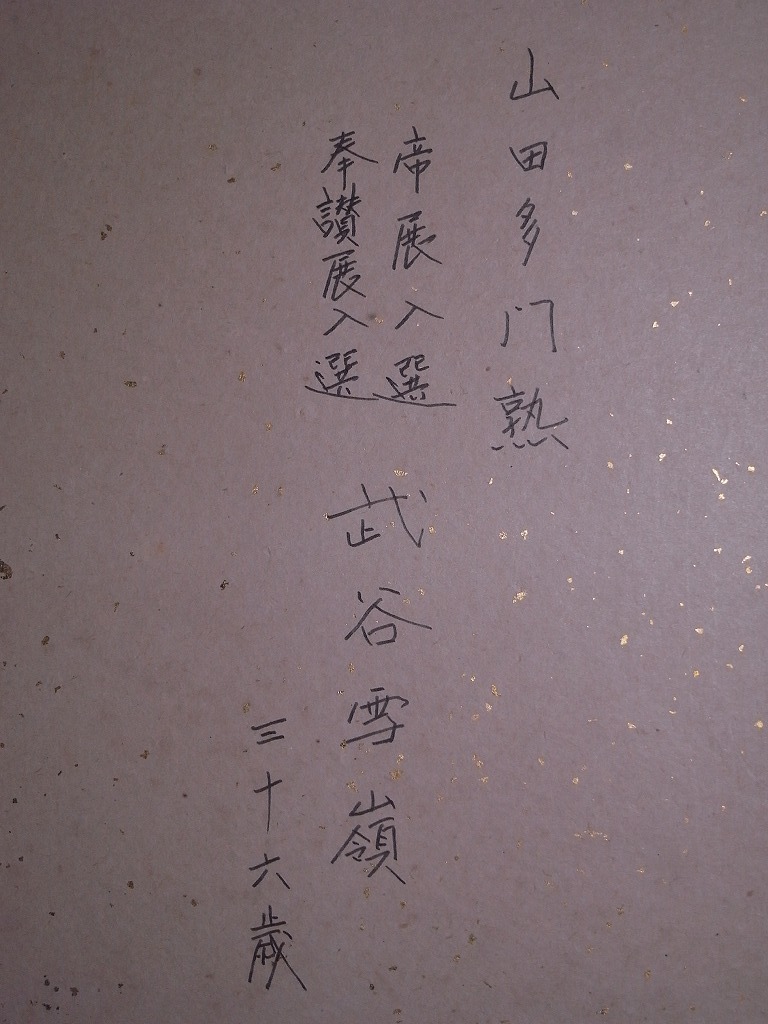 山田多门熟
帝展入選
奉讃展入選
武谷雪嶺
三十六歳